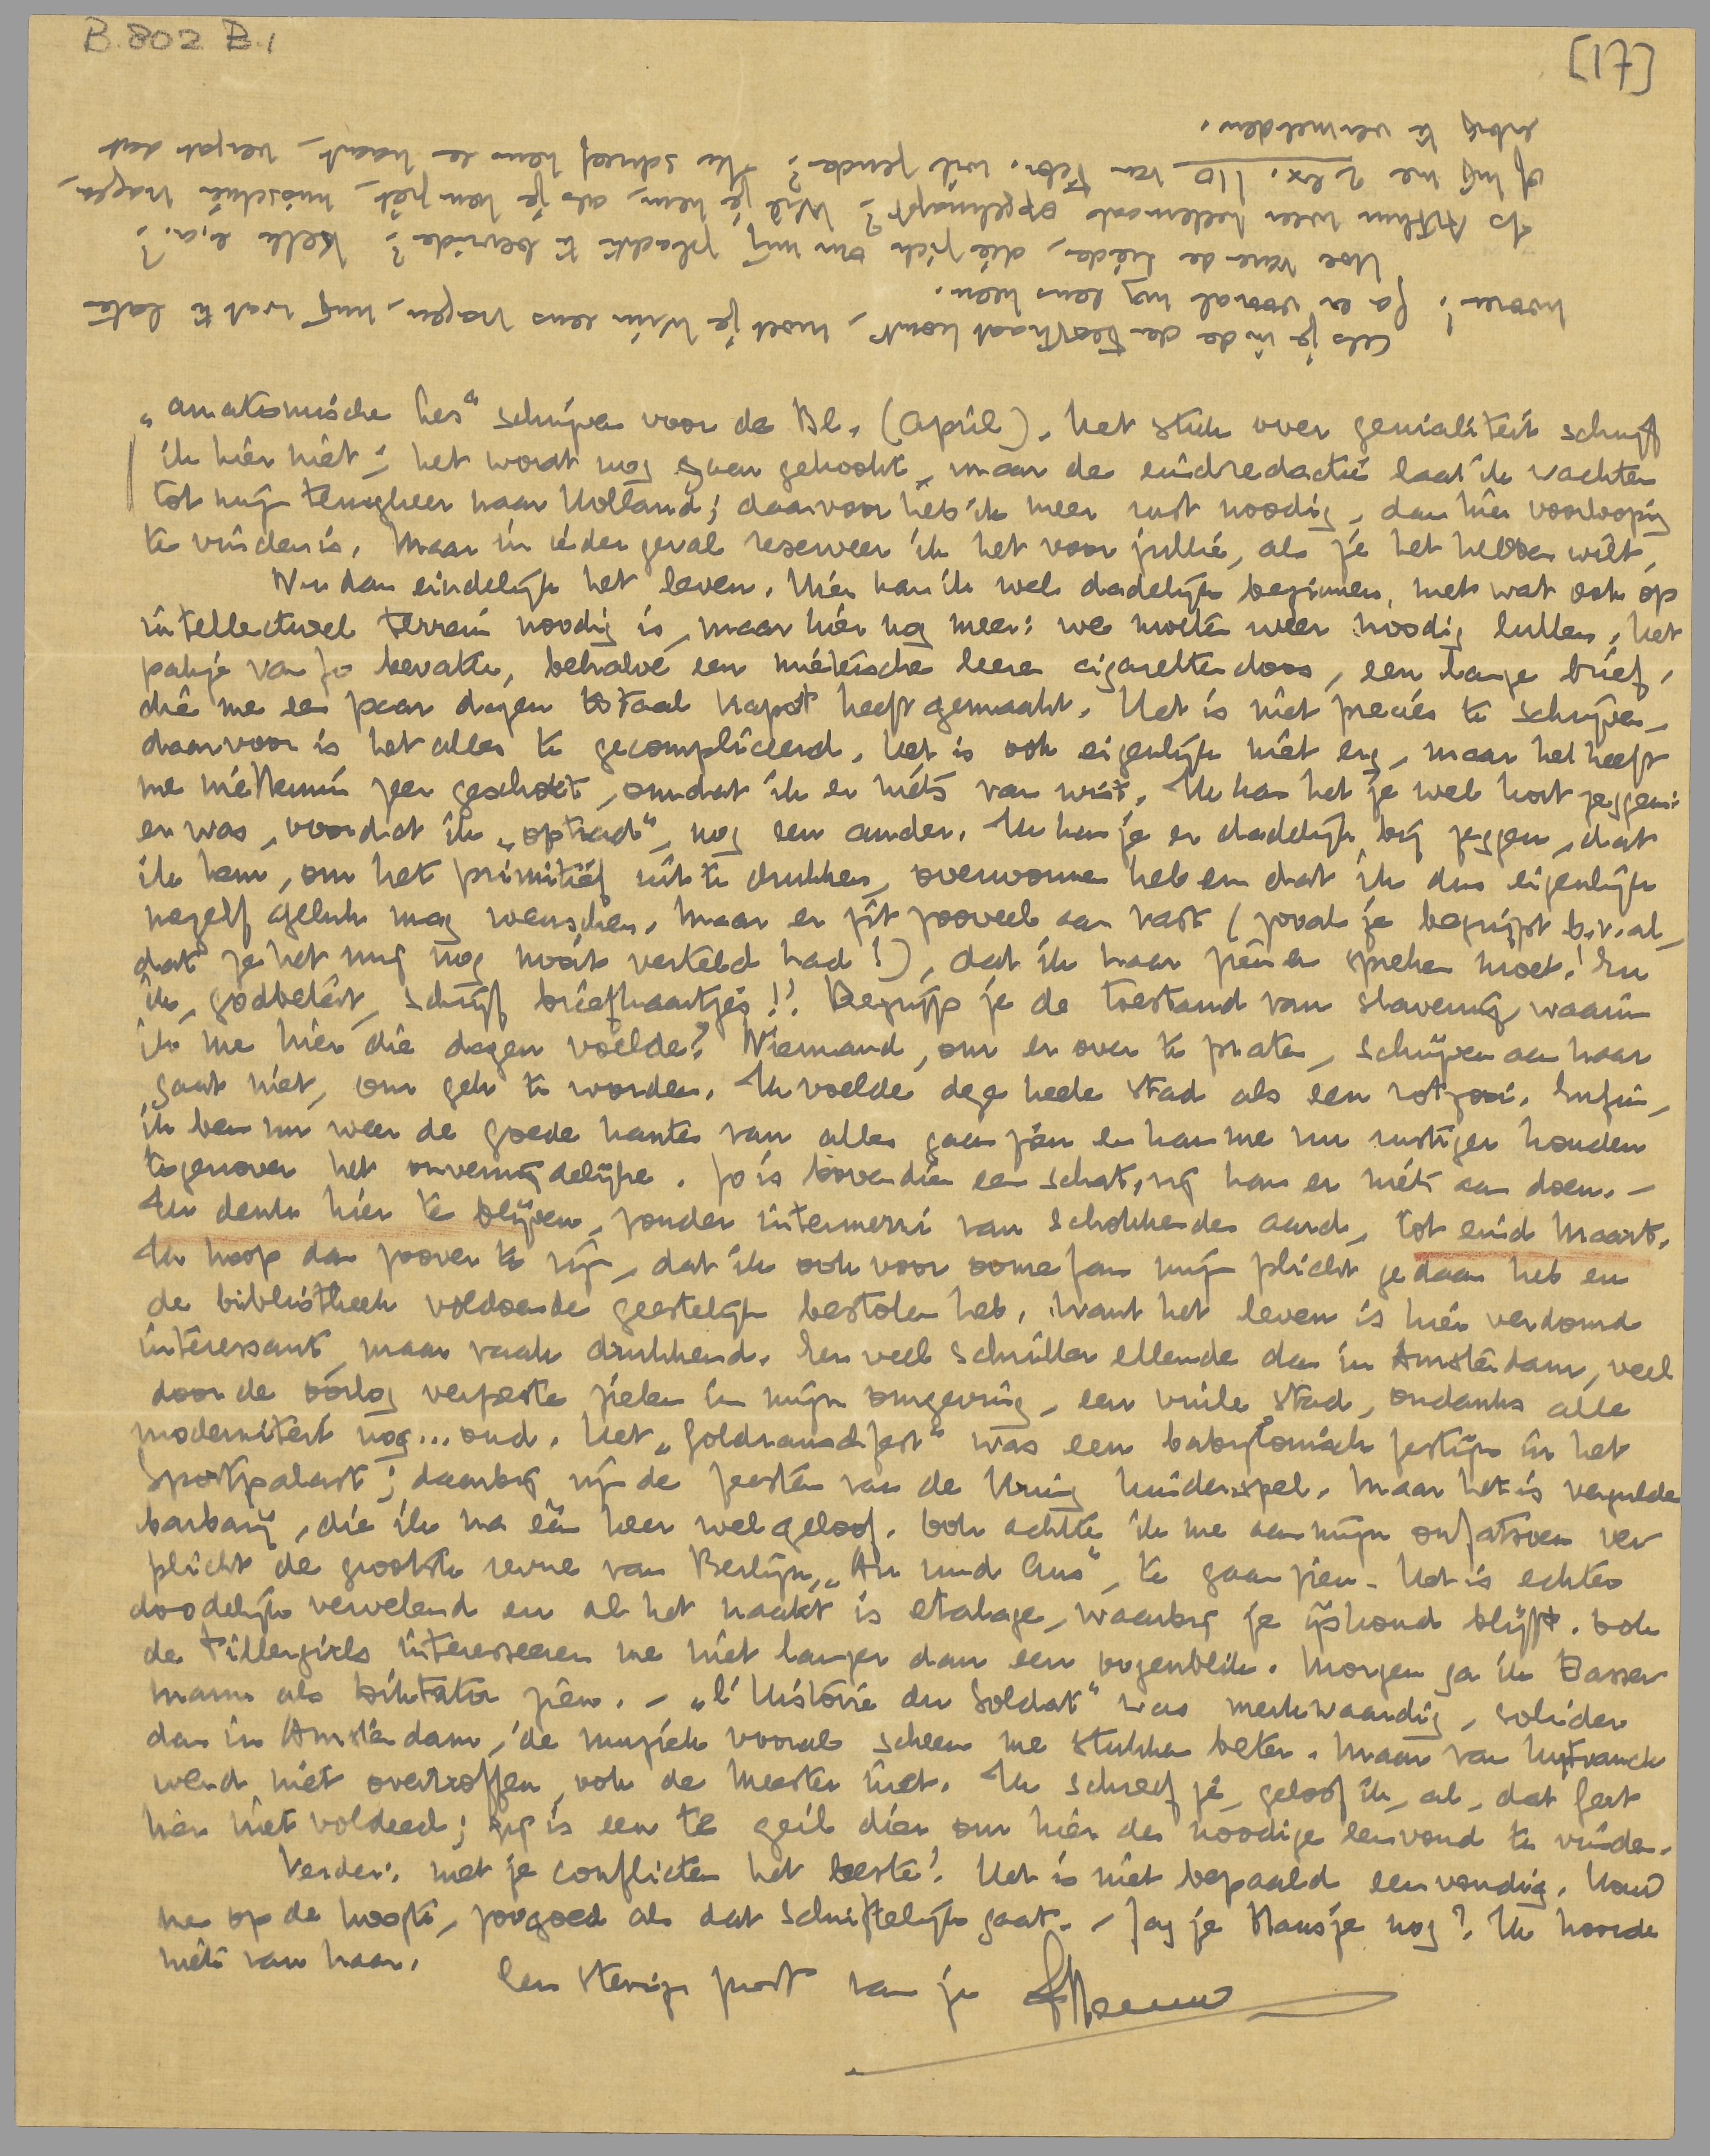 B.802 B.1
[17]
„anatomische les" schrijven voor de Bl. (April). Het stuk over genialiteit schrijf
ik hier niet; het wordt nog gaar gekookt, maar de eindredactie laat ik wachten
tot mijn terugkeer naar Holland; daarvoor heb ik meer rust noodig, dan hier voorloopig
te vinden is. Maar in ieder geval reserveer ik het voor jullie, als je het hebben wilt.
Nu dan eindelijk het leven. Hier kan ik wel dadelijk beginnen, met wat ook op
intellectueel terrein noodig is, maar hier nog meer: we moeten weer noodig lullen. Het
pakje van Jo bevatte, behalve een miétische leeren cigarettendoos, een lange brief,
die me een paar dagen totaal kapot heeft gemaakt. Het is niet precies te schrijven,
daarvoor is het alles te gecompliceerd. Het is ook eigenlijk niet erg, maar het heeft
me niettemin zeer geschokt, omdat ik er niets van wist. Ik kan het je wel kort zeggen:
er was, voordat ik „optrad", nog een ander. Ik kan je er dadelijk bij zeggen, dat
ik hem, om het primitief uit te drukken, overwonnen heb en dat ik dus eigenlijk
mezelf geluk mag wenschen. Maar er zit zooveel aan vast (zooals je begrijpt b.v. al,
dat ze het mij nog nooit verteld had!), dat ik haar zien en spreken moet. En
ik, godbetert, schrijf briefkaartjes!! Begrijp je de toestand van slavernij, waarin
ik me hier die dagen voelde? Niemand, om er over te praten, schrijven aan haar
gaat niet, om gek te worden. Ik voelde deze heele stad als een rotzooi. Enfin,
ik ben nu weer de goede kanten van alles gaan zien en kan me nu rustiger houden
tegenover het onvermijdelijke. Jo is bovendien een schat, zij kan er niets aan doen. –
Ik denk hier te blijven, zonder intermezzi van schokkenden aard, tot eind Maart.
Ik hoop dan zoover te zijn, dat ik ook voor oome Jan mijn plicht gedaan heb en
de bibliotheek voldoende geestelijk bestolen heb. Want het leven is hier verdomd
interessant, maar vaak drukkend. Een veel schriller ellende dan in Amsterdam, veel
door de oorlog verpeste zielen in mijn omgeving, een vuile stad, ondanks alle
moderniteit nog... oud. Het „Goldrauschfest" was een babylonisch festijn in het
Sportpalast; daarbij zijn de feesten van de Kring kinderspel. Maar het is vergulde
barbarij, die ik na één keer wel geloof. Ook achtte ik me aan mijn onfatsoen ver
plicht de grootste revue van Berlijn, „An und Aus", te gaan zien. Het is echter
doodelijk vervelend en al het naakt is etalage, waarbij je ijskoud blijft. Ook
de Tillergirls interesseeren me niet langer dan een oogenblik. Morgen ga ik Basser
mann als Diktator zien. – „l'Histoire du Soldat" was merkwaardig, solider
dan in Amsterdam, de muziek vooral scheen me stukken beter. Maar van Huffranck
werd niet overtroffen, ook de Meester niet. Ik schreef je, geloof ik, al, dat Gert
hier niet voldeed; zij is een te geil dier om hier den noodige eenvoud te vinden.
Verder: met je conflicten het beste! Het is niet bepaald eenvoudig. Houd
me op de hoogte, zoo goed als dat schriftelijk gaat. – Zag je Hansje nog? Ik hoorde
niets van haar.
Een stevige poot van je Menno
Als je in de Beethoovenstraat komt, moet je Wim eens vragen, mij wat te laten
hooren! Ga er vooral nog eens heen.
Hoe varen de lieden, die zich om mij plachten te bevinden? Kelk e.a.?
Is Arthur weer heelemaal opgeknapt? Wil je hem, als je hem ziet, misschien vragen,
of hij me 2 ex. 110 van Febr. wil zenden? Ik schreef hem een kaart, vergat dat
erbij te vermelden.